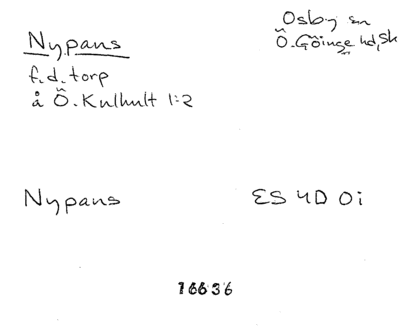 Nypans
Osby sn
Ö. Göinge hd, Sk
f.d. torp
å Ö. Kulhult 1:2
Nypans
ES 4D 0i
16636